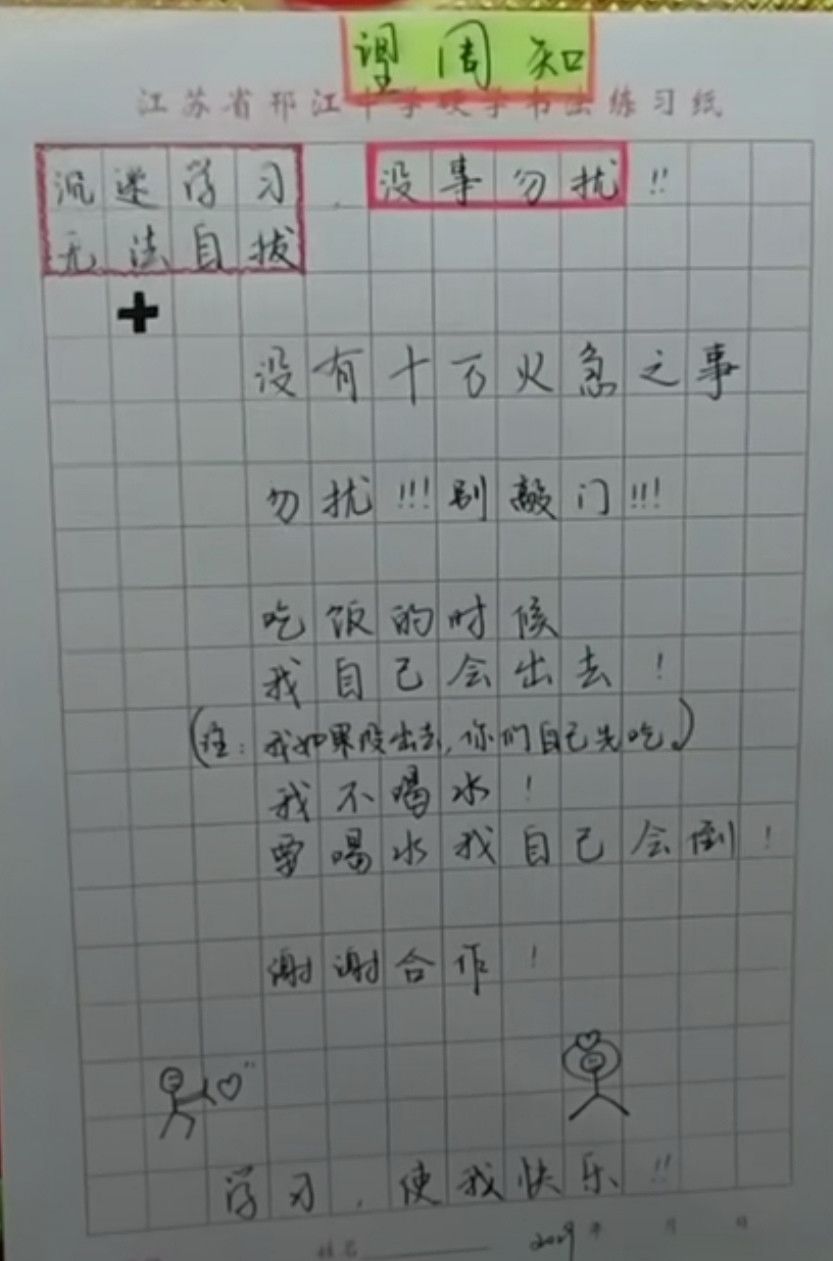 望周知
江苏省邗江中学硬笔书法练习纸
沉迷学习，没事勿扰!!
无法自拔
没有十万火急之事
勿扰!!!别敲门!!!
吃饭的时候
我自己会出去!
(注:我如果没出去,你们自己先吃。)
我不喝水!
要喝水我自己会倒!
谢谢合作!
学习,使我快乐!!
姓名 年 月 日